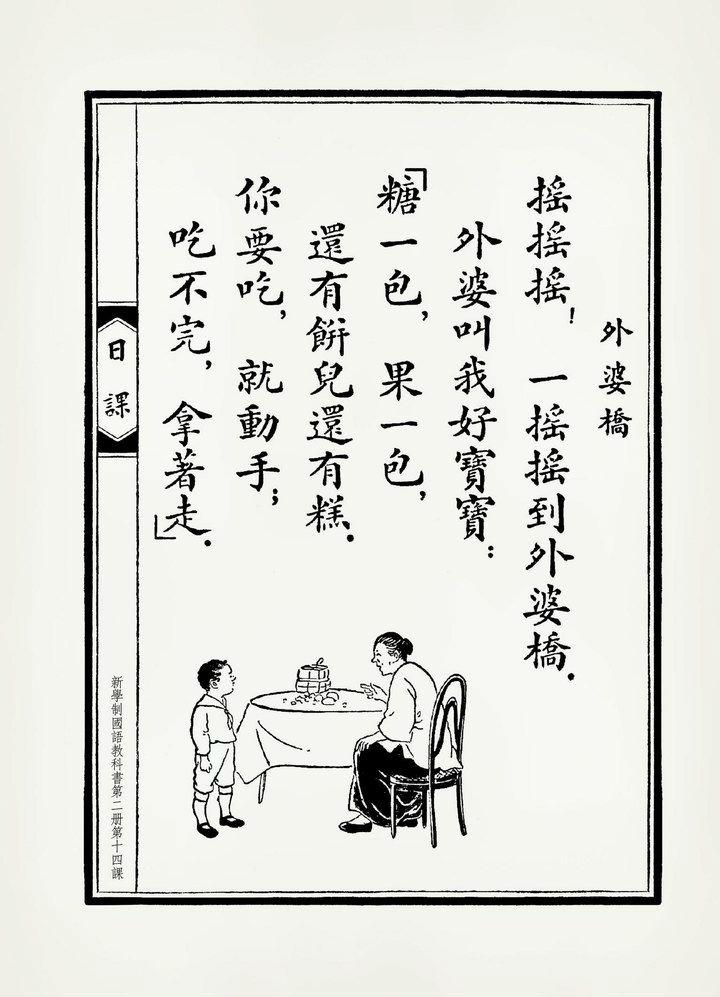 外婆橋
搖搖搖！一搖搖到外婆橋．
外婆叫我好寶寶：
「糖一包，果一包，
還有餅兒還有糕．
你要吃，就動手；
吃不完，拿著走．」
日課
新學制國語教科書第二册第十四課